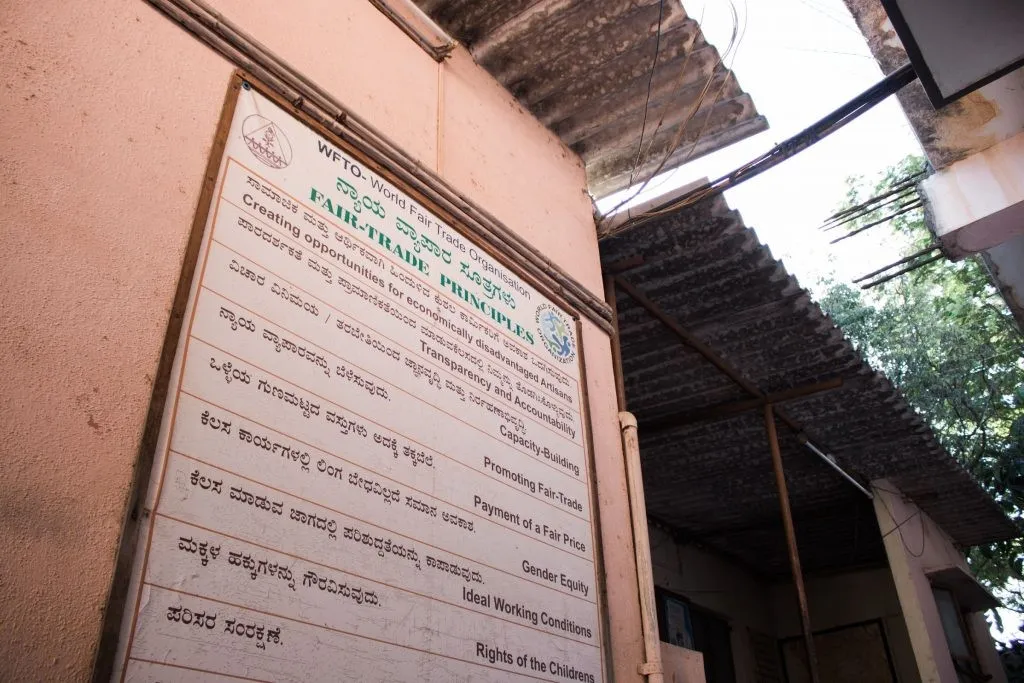 WFTO- World Fair Trade Organisation
ನ್ಯಾಯ ವ್ಯಾಪಾರ ಸೂತ್ರಗಳು
FAIR-TRADE PRINCIPLES
ಸಾಮಾಜಿಕ ಮತ್ತು ಆರ್ಥಿಕವಾಗಿ ಹಿಂದುಳಿದ ಕುಶಲ ಕರ್ಮಿಗಳಿಗೆ ಅವಕಾಶ ಒದಗಿಸುವುದು
Creating opportunities for economically disadvantaged Artisans
ಪಾರದರ್ಶಕತೆ ಮತ್ತು ಪ್ರಾಮಾಣಿಕತೆಯಿಂದ
Transparency and Accountability
ವಿಚಾರ ವಿನಿಮಯ / ತರಬೇತಿಯಿಂದ ಜ್ಞಾನವೃದ್ಧಿ ಮತ್ತು
Capacity-Building
ನ್ಯಾಯ ವ್ಯಾಪಾರವನ್ನು ಬೆಳೆಸುವುದು.
Promoting Fair-Trade
ಒಳ್ಳೆಯ ಗುಣಮಟ್ಟದ ವಸ್ತುಗಳು ಅದಕ್ಕೆ ತಕ್ಕಬೆಲೆ.
Payment of a Fair Price
ಕೆಲಸ ಕಾರ್ಯಗಳಲ್ಲಿ ಲಿಂಗ ಬೇಧವಿಲ್ಲದೆ ಸಮಾನ ಅವಕಾಶ.
Gender Equity
ಕೆಲಸ ಮಾಡುವ ಜಾಗದಲ್ಲಿ ಪರಿಶುದ್ಧತೆಯನ್ನು ಕಾಪಾಡುವುದು.
Ideal Working Conditions
ಮಕ್ಕಳ ಹಕ್ಕುಗಳನ್ನು ಗೌರವಿಸುವುದು.
Rights of the Childrens
ಪರಿಸರ ಸಂರಕ್ಷಣೆ.